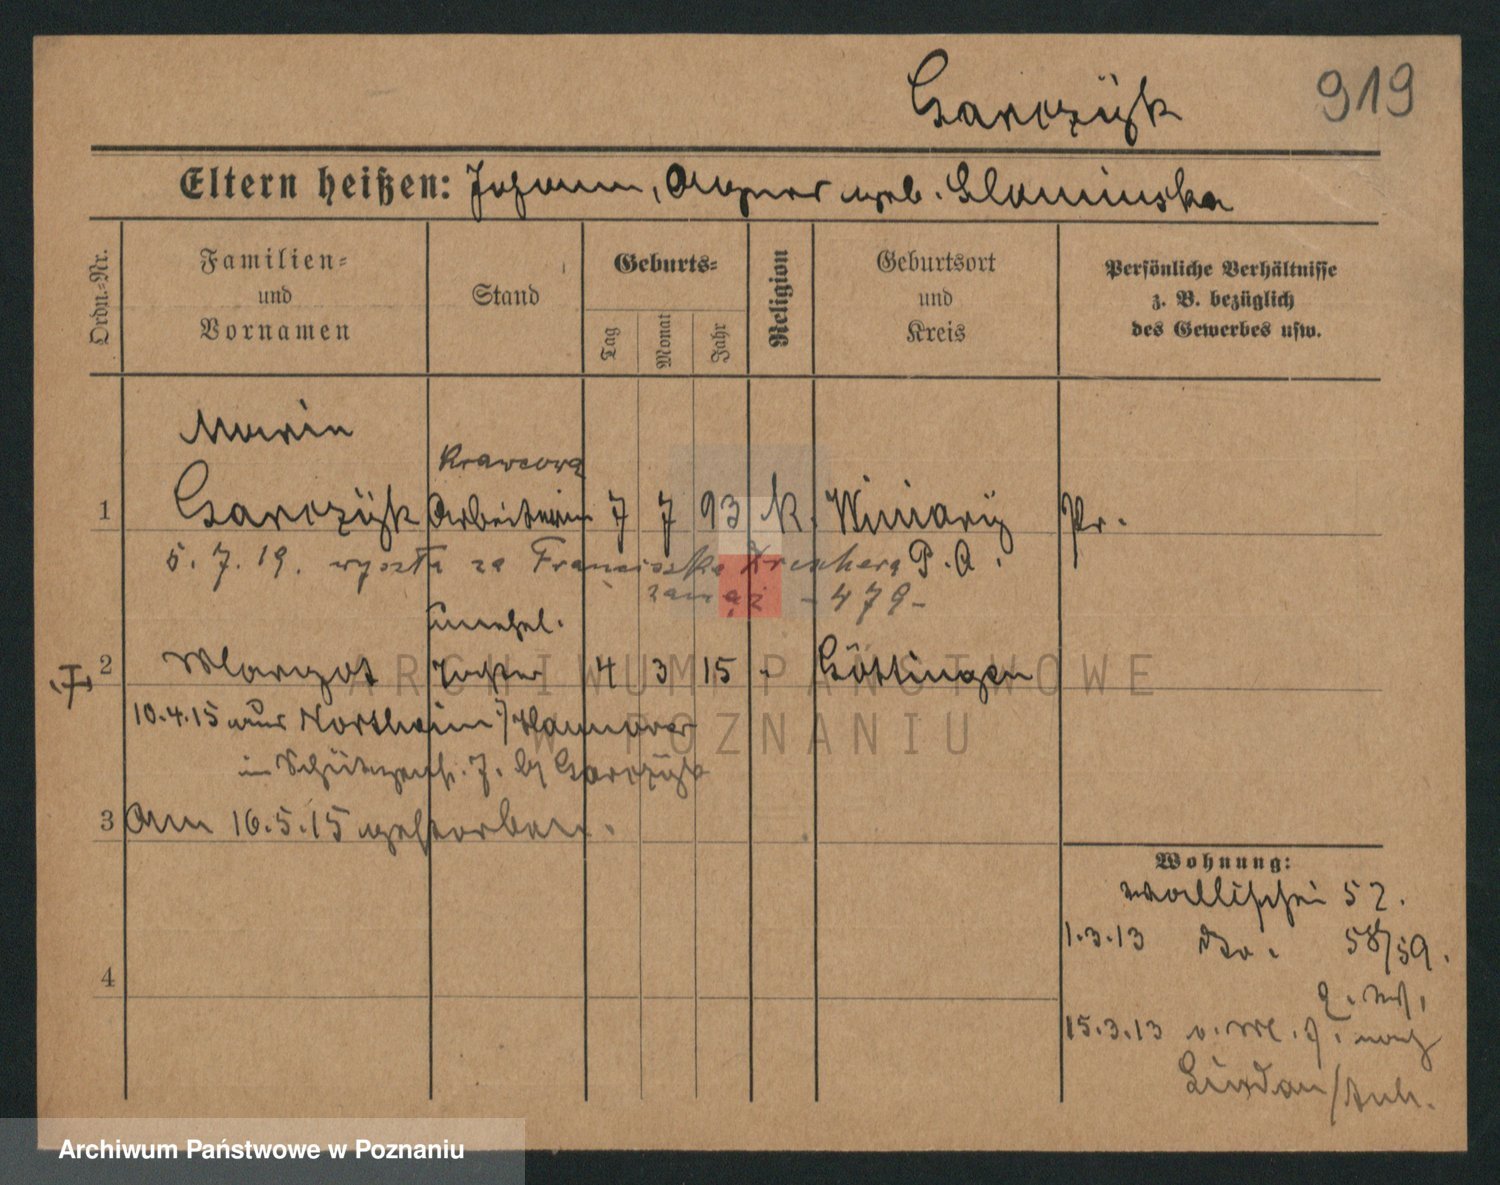 Garczÿk 919
Eltern heißen: Johann, Agnes geb. Slominska
Ordn.-Nr.
Familien-
und
Vornamen
Stand
Geburts-
Tag
Monat
Jahr
Religion
Geburtsort
und
Kreis
Persönliche Verhältnisse
z. B. bezüglich
des Gewerbes usw.
Marie
Krawcowa
1 Garczÿk Arbeiterin 7 7 93 K. Winiarÿ Pr.
5. 7. 19. wyszła za Franciszka P. A.
zamąż - 479 -
unehel.
2 Margot Tochter 4 3 15 " Göttingen
10.4.15 aus Northeim / Hannover
in bei Garczÿk
3 Am 16.5.15 gestorben.
4
Wohnung:
Wallischei 52.
1.3.13 do. 58/59.
15.3.13 nach
Lindau / Anh.
ARCHIWUM PAŃSTWOWE
W POZNANIU
Archiwum Państwowe w Poznaniu